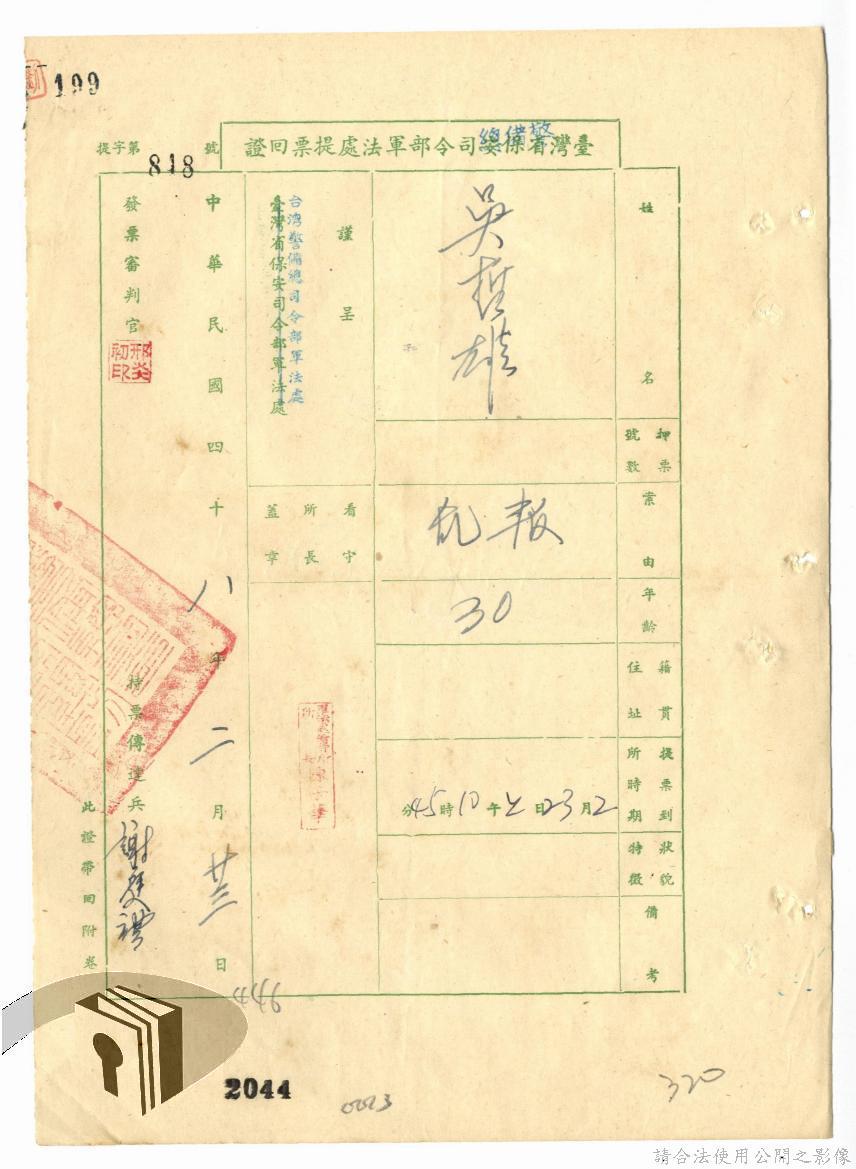 199
臺灣省保安司令部軍法處提票回證
警備總
提字第818號
姓名
吳哲雄
押票號數
案由
叛亂
年齡
30
籍貫住址
提票到所時期
2月23日上午10時45分
狀貌特徵
備考
謹呈
台湾警備總司令部軍法處
臺灣省保安司令部軍法處
看守所長蓋章
中華民國四十八年二月廿三日
發票審判官
邢炎初印
持票傳達兵
此證帶回附卷
2044
0023
320
請合法使用公開之影像